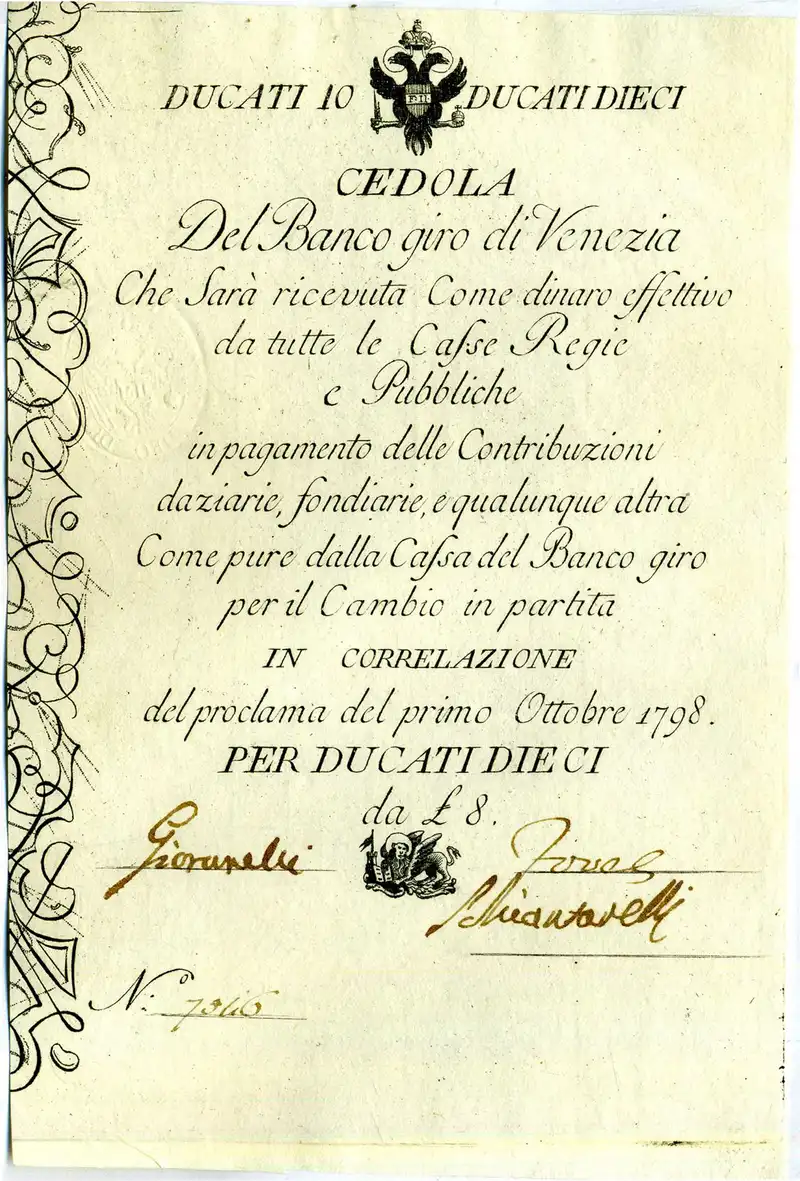 DUCATI 10 DUCATI DIECI
F.II.
CEDOLA
Del Banco giro di Venezia
Che Sarà ricevuta Come dinaro effettivo
da tutte le Caſse Regie
e Pubbliche
in pagamento delle Contribuzioni
daziarie, fondiarie, e qualunque altra
Come pure dalla Caſsa del Banco giro
per il Cambio in partita
IN CORRELAZIONE
del proclama del primo Ottobre 1798.
PER DUCATI DIECI
da £ 8.
Giovanelli
Schiantarelli
N:º